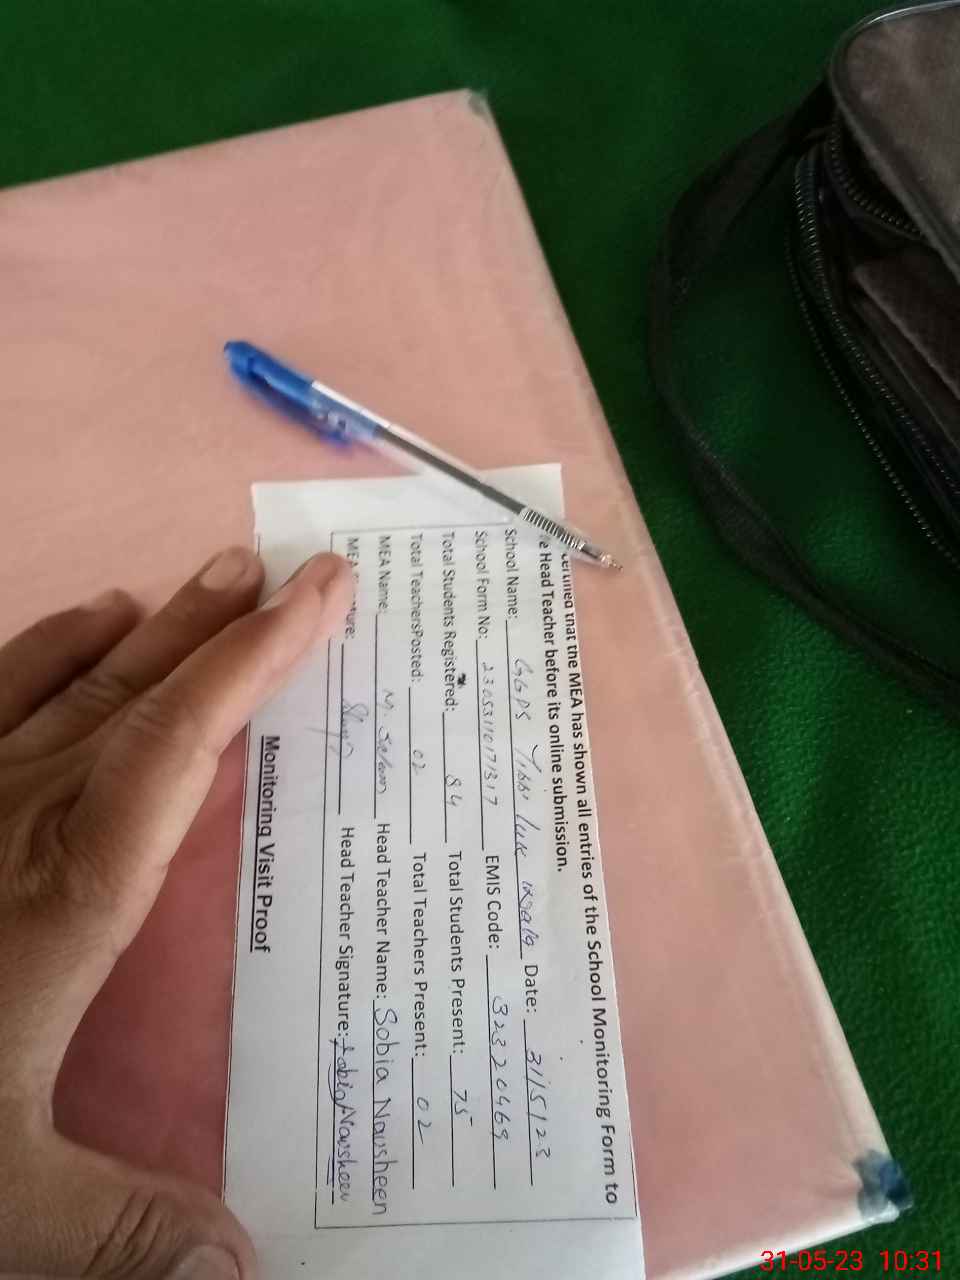 certified that the MEA has shown all entries of the School Monitoring Form to
e Head Teacher before its online submission.
School Name: GGPS Tibbi Date: 31/5/23
School Form No: 23053110171317 EMIS Code: 32320469
Total Students Registered: 84 Total Students Present: 75
Total TeachersPosted: 02 Total Teachers Present: 02
MEA Name: M. Saleem Head Teacher Name: Sobia Navsheen
MEA ture: Head Teacher Signature: Sobia Navsheen
Monitoring Visit Proof
31-05-23 10:31